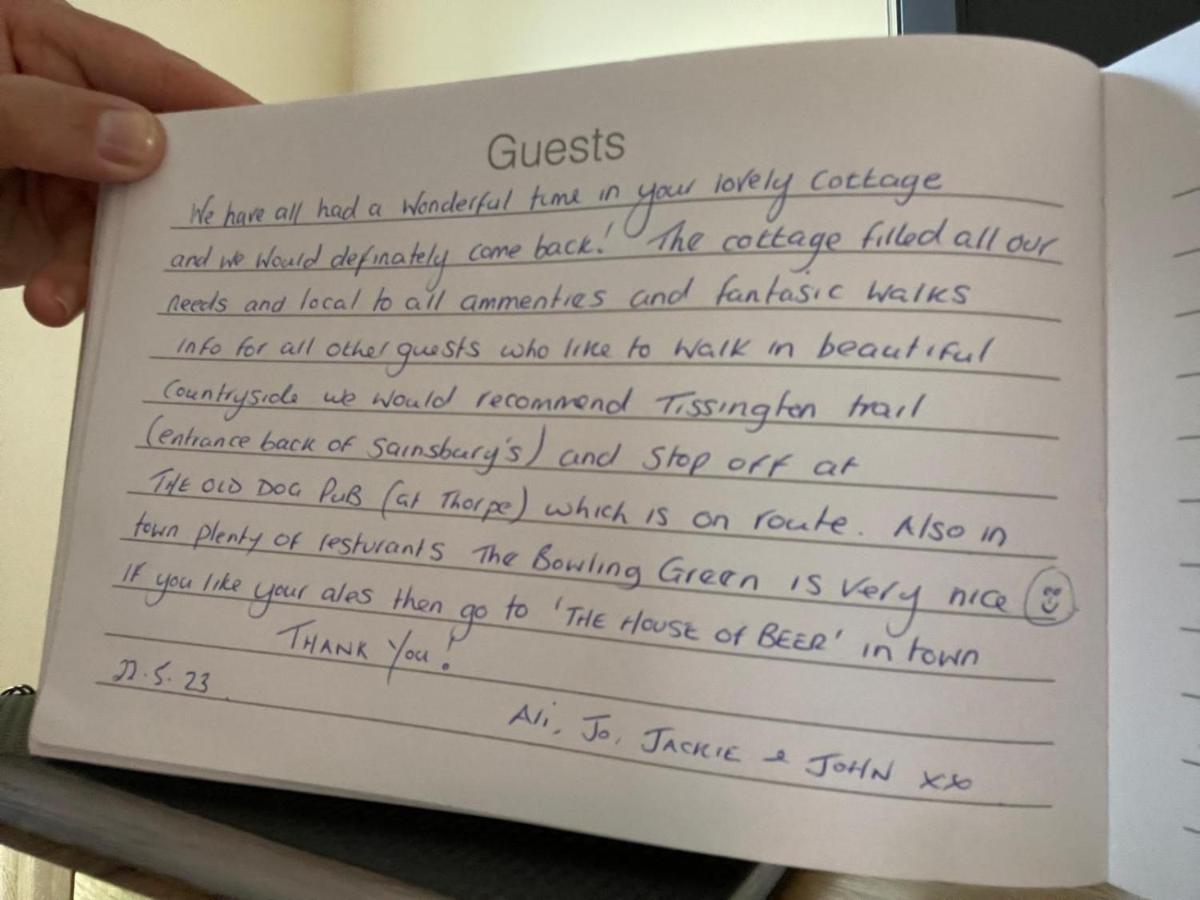 Guests
We have all had a wonderful time in your lovely cottage
and we would definately come back! The cottage filled all our
needs and local to all ammenties and fantasic walks
info for all other guests who like to walk in beautiful
countryside we would recommend Tissington trail
(entrance back of Sainsbury's) and stop off at
THE OLD DOG PUB (at Thorpe) which is on route. Also in
town plenty of resturants The Bowling Green is very nice
If you like your ales then go to 'THE HOUSE of BEER' in town
THANK You!
22.5.23
Ali, Jo, JACKIE & JOHN xx